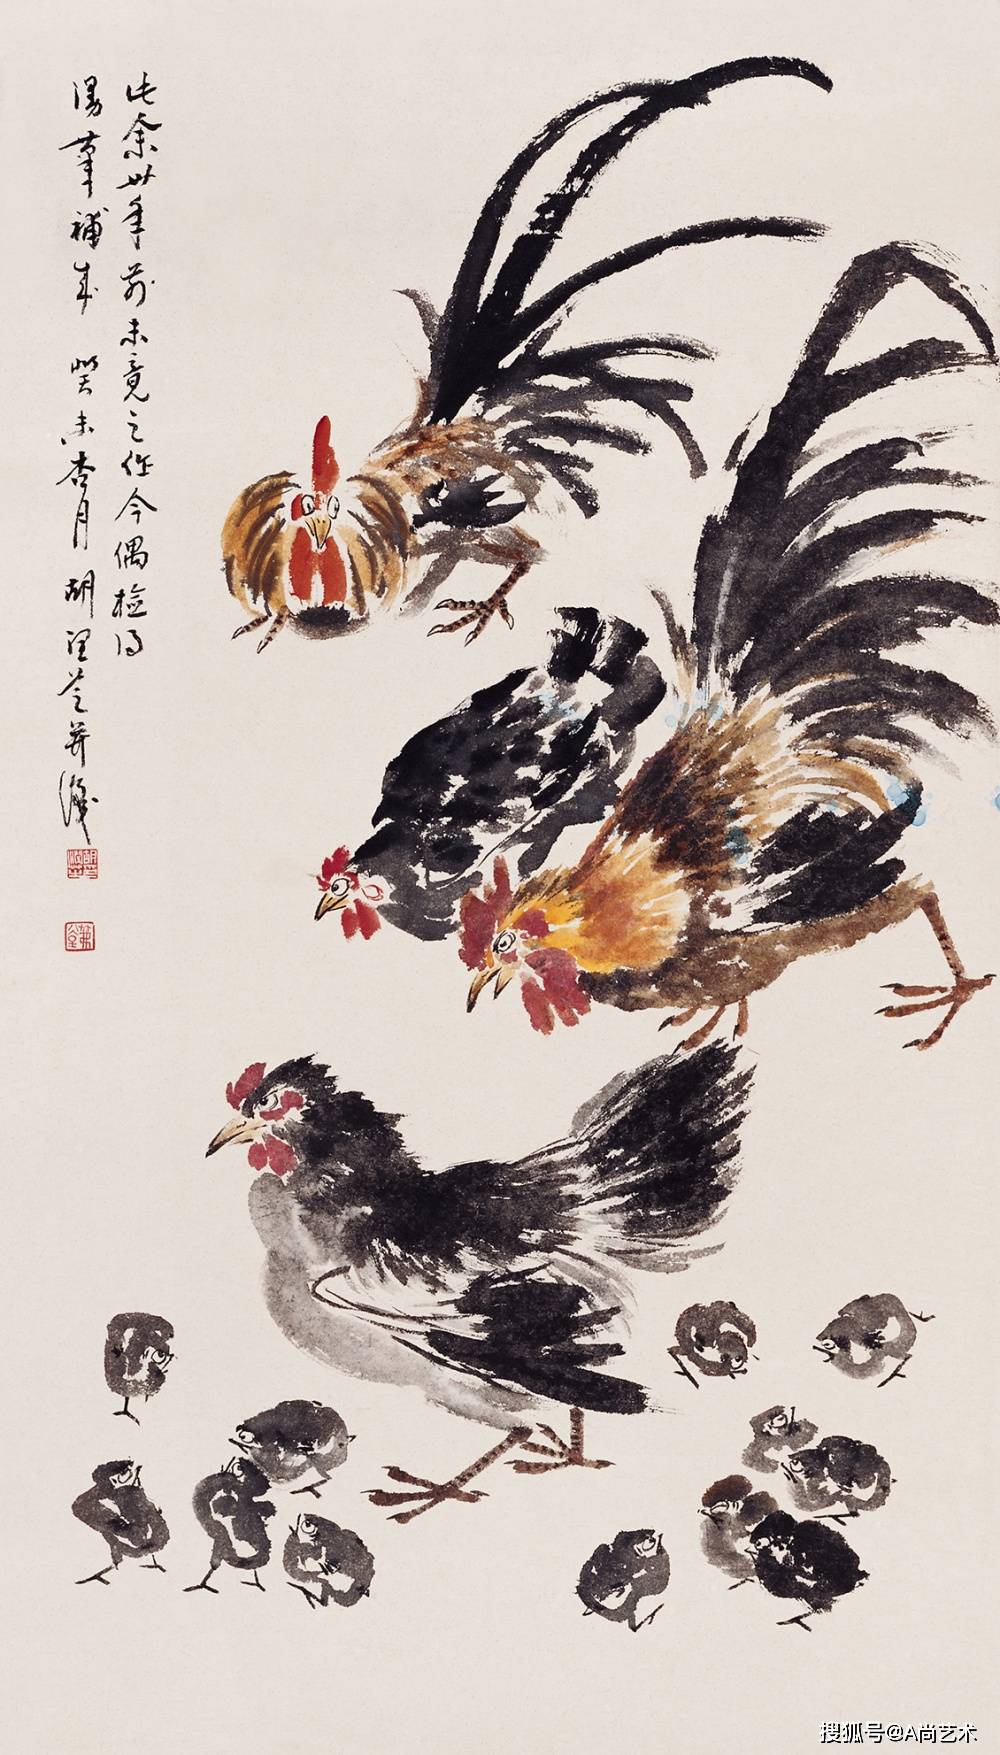 此余卅年前未竟之作今偶检得
漫笔補成 癸未杏月 胡 芝并識
搜狐号@A尚艺术